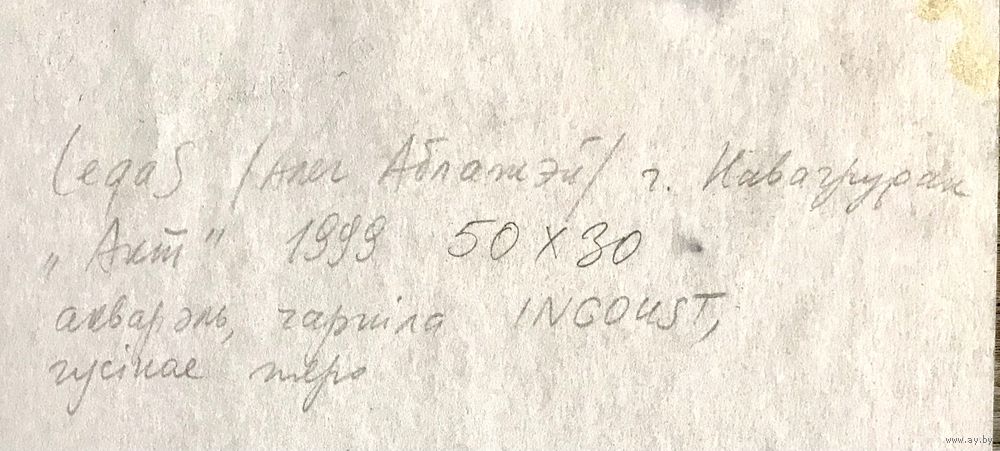 LegaS /Алег Аблажэй/ г. Навагрудак
„Акт" 1999 50 х 30
акварэль, чарніла INGOUST,
гусінае пяро
www.ay.by